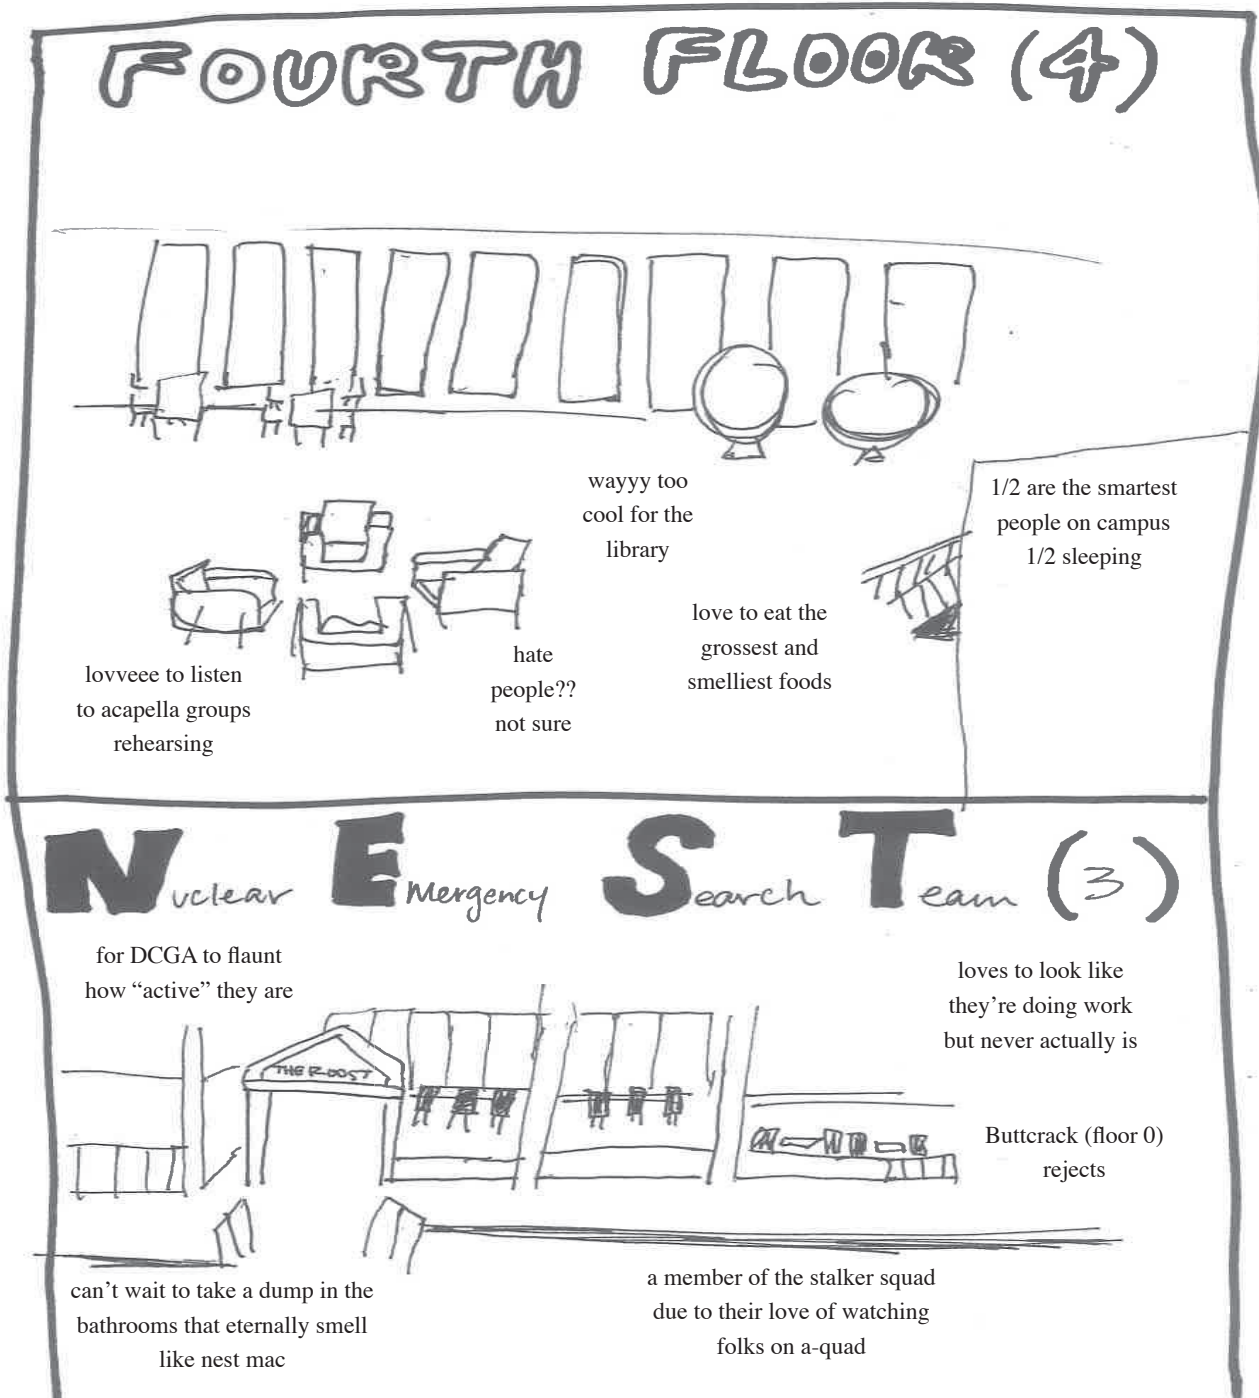 FOURTH FLOOR (4)
wayyy too
cool for the
library
1/2 are the smartest
people on campus
1/2 sleeping
love to eat the
grossest and
smelliest foods
hate
people??
not sure
lovveee to listen
to acapella groups
rehearsing
Nuclear EMergency Search Team (3)
for DCGA to flaunt
how “active” they are
loves to look like
they’re doing work
but never actually is
THE ROOST
Buttcrack (floor 0)
rejects
can’t wait to take a dump in the
bathrooms that eternally smell
like nest mac
a member of the stalker squad
due to their love of watching
folks on a-quad